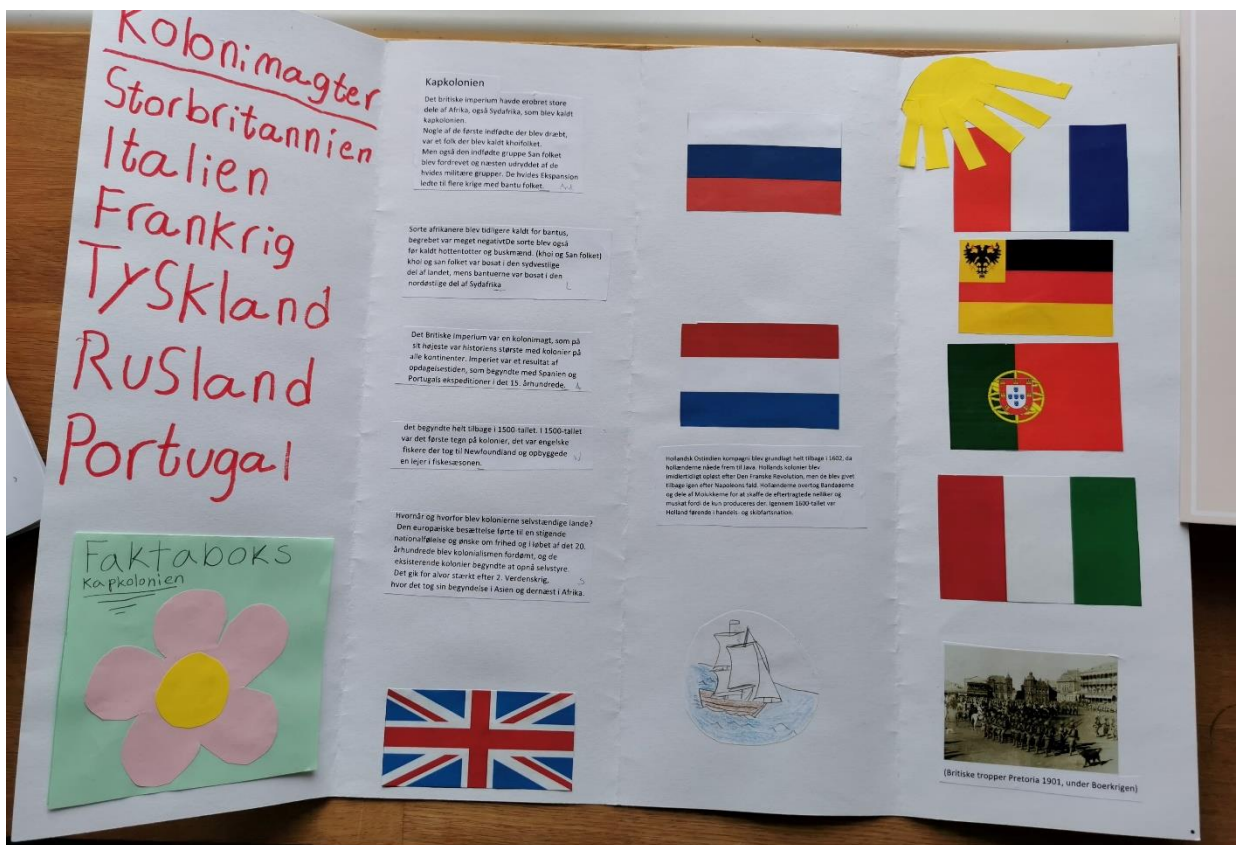 Kolonimagter
Storbritannien
Italien
Frankrig
Tyskland
Rusland
Portugal
Faktaboks
Kapkolonien
Kapkolonien
Det britiske imperium havde erobret store
dele af Afrika, også Sydafrika, som blev kaldt
kapkolonien.
Nogle af de første indfødte der blev dræbt,
var et folk der blev kaldt khoifolket.
Men også den indfødte gruppe San folket
blev fordrevet og næsten udryddet af de
hvides militære grupper. De hvides Ekspansion
ledte til flere krige med bantu folket.
Sorte afrikanere blev tidligere kaldt for bantus,
begrebet var meget negativtDe sorte blev også
før kaldt hottentotter og buskmænd. (khoi og San folket)
khoi og san folket var bosat i den sydvestlige
del af landet, mens bantuerne var bosat i den
nordøstlige del af Sydafrika
Det Britiske Imperium var en kolonimagt, som på
sit højeste var historiens største med kolonier på
alle kontinenter. Imperiet var et resultat af
opdagelsestiden, som begyndte med Spanien og
Portugals ekspeditioner i det 15. århundrede.
det begyndte helt tilbage i 1500-tallet. I 1500-tallet
var det første tegn på kolonier, det var engelske
fiskere der tog til Newfoundland og opbyggede
en lejer i fiskesæsonen.
Hvornår og hvorfor blev kolonierne selvstændige lande?
Den europæiske besættelse førte til en stigende
nationalfølelse og ønske om frihed og i løbet af det 20.
århundrede blev kolonialismen fordømt, og de
eksisterende kolonier begyndte at opnå selvstyre.
Det gik for alvor stærkt efter 2. Verdenskrig,
hvor det tog sin begyndelse i Asien og dernæst i Afrika.
Hollandsk Ostindien kompagni blev grundlagt helt tilbage i 1602, da
hollænderne nåede frem til Java. Hollands kolonier blev
imidlertidigt opløst efter Den Franske Revolution, men de blev givet
tilbage igen efter Napoleons fald. Hollænderne overtog Bandaøerne
og dele af Molukkerne for at skaffe de eftertragtede nelliker og
muskat fordi de kun produceres der. Igennem 1600-tallet var
Holland førende i handels- og skibfartsnation.
(Britiske tropper Pretoria 1901, under Boerkrigen)